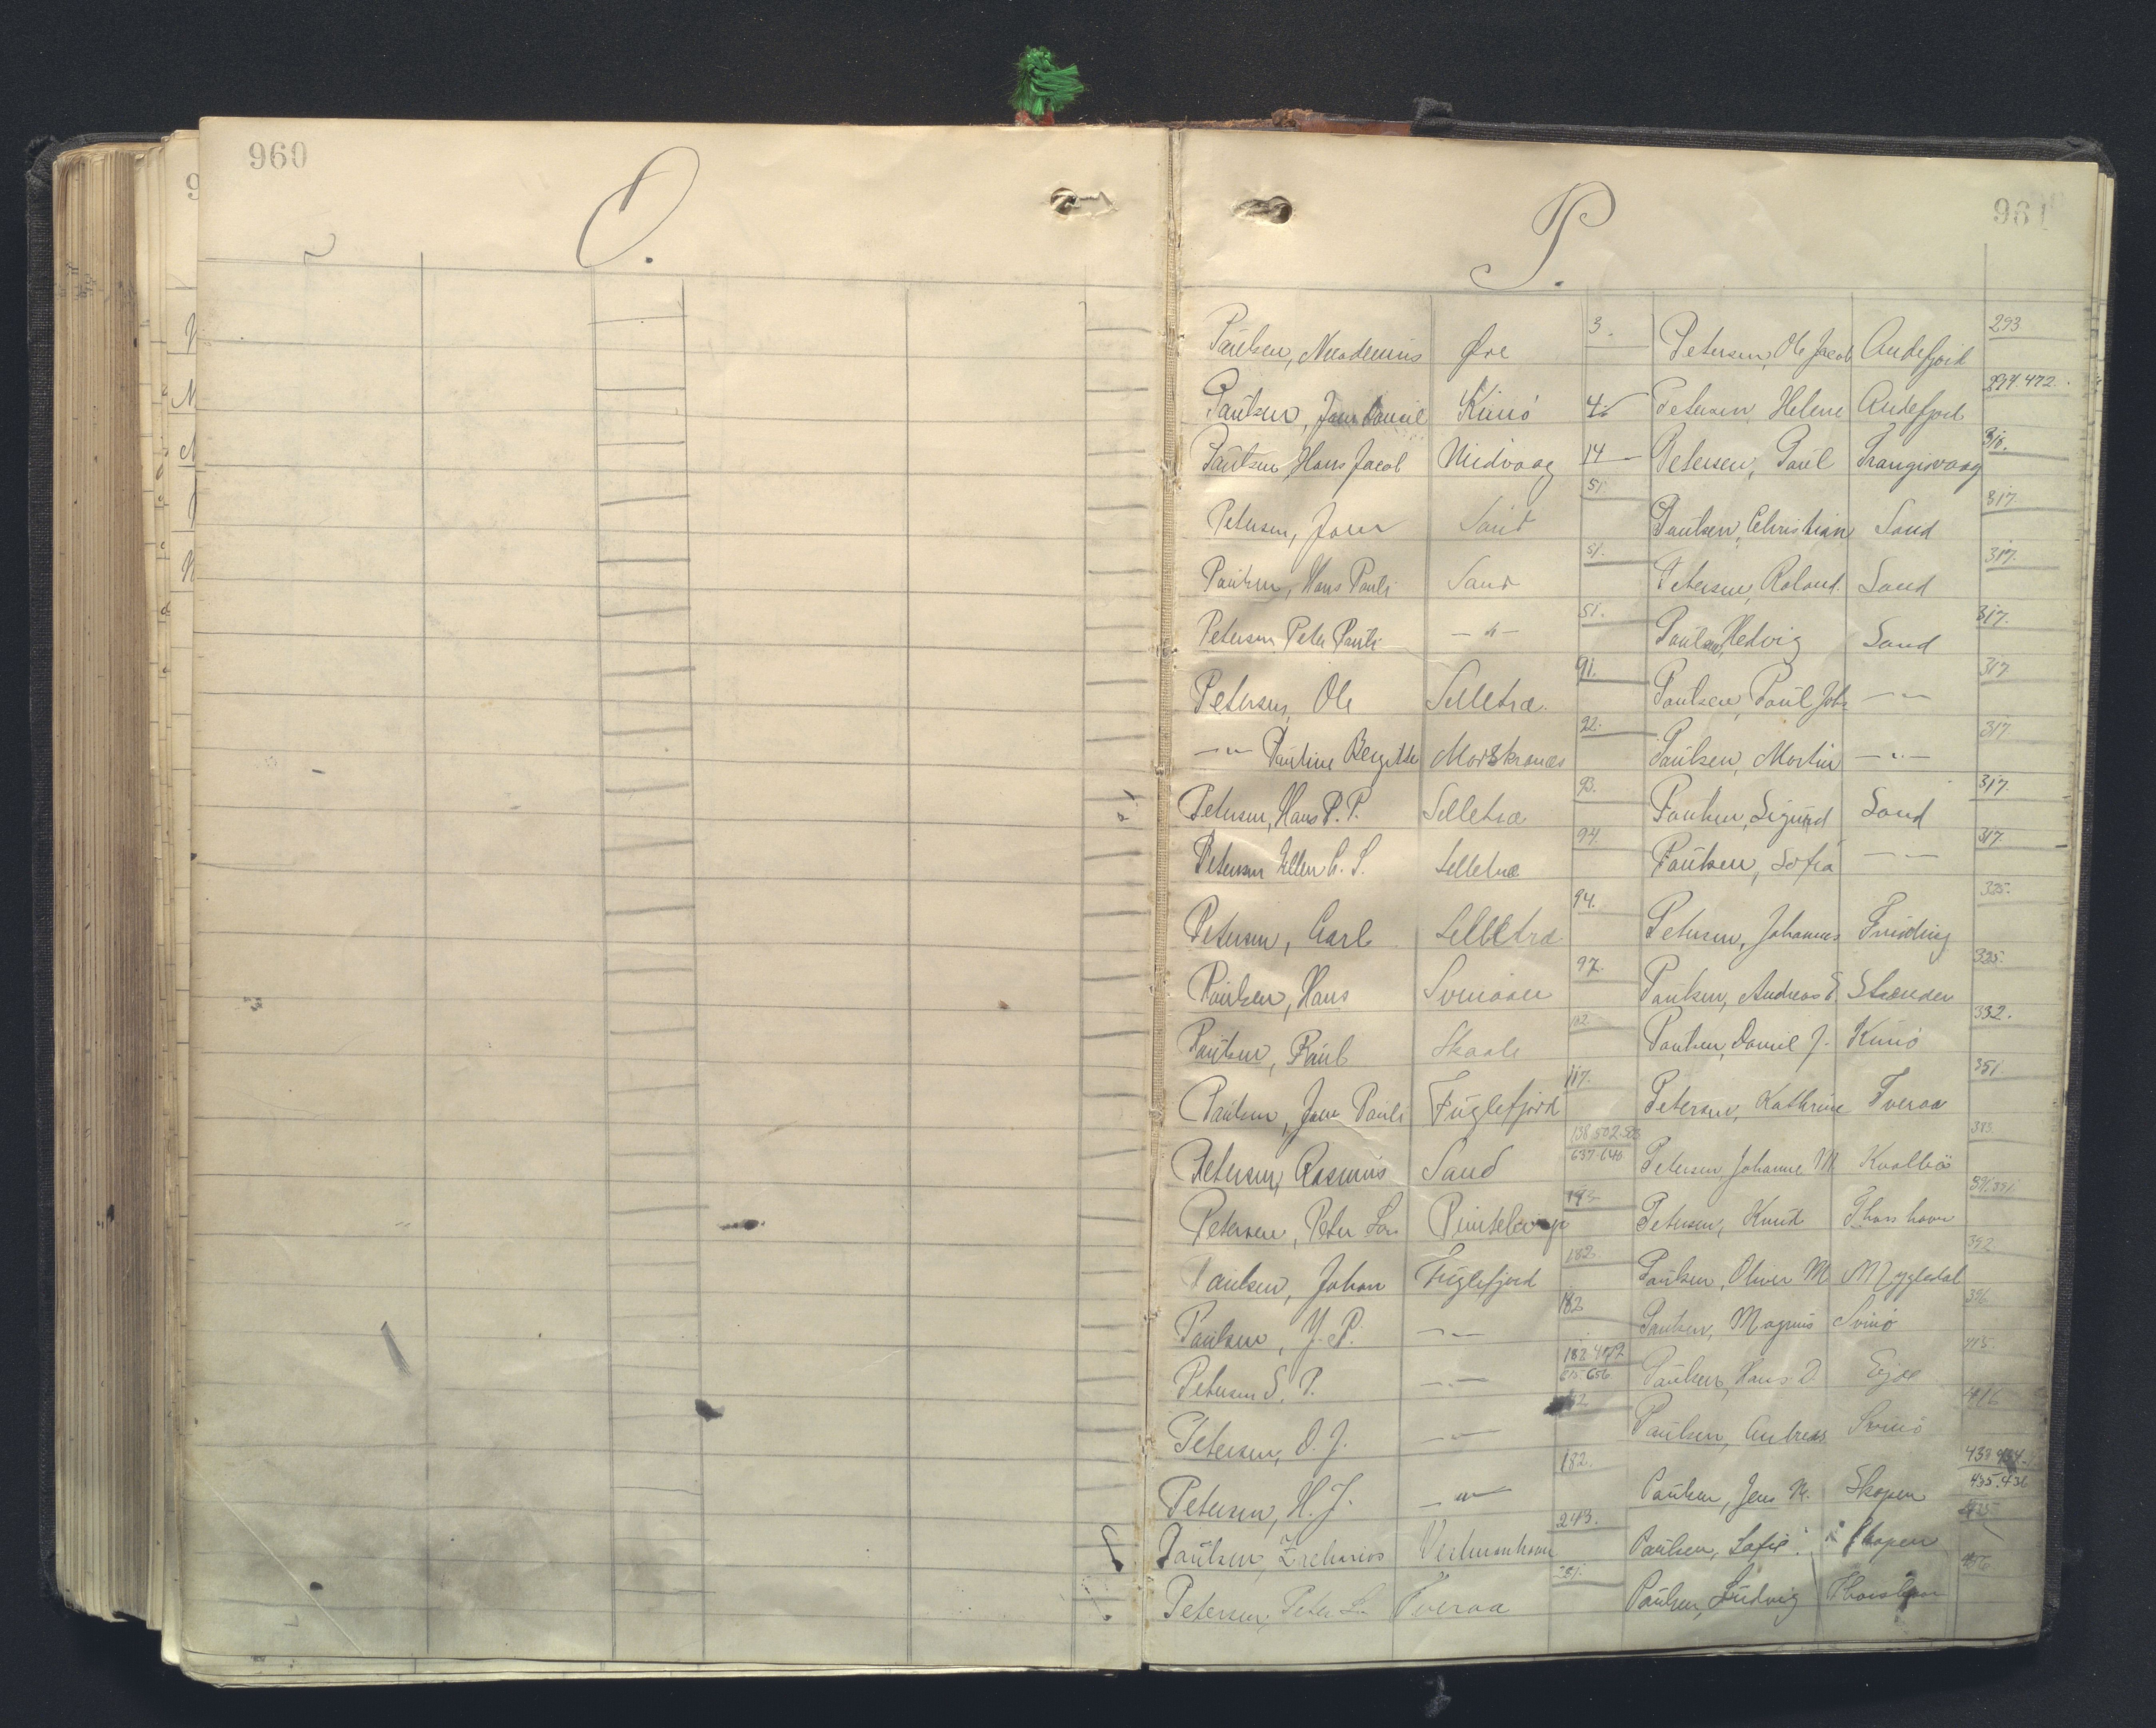 960
O.
P.
961
Paulsen, Øre 3.
Paulsen, Jens Daniel Kunö 4
Paulsen, Hans Jacob Midvaag 14
Petersen, Jens Sand 51
Paulsen, Hans Pauli Sand 51.
Petersen Peter Pauli — " — 51.
Petersen, Ole Selletræ. 91.
— " — Pauline Bergitte Morskranes 92.
Petersen, Hans P. P. Selletræ 93.
Petersen Ellen C. S. Selletræ 94.
Petersen, Carl Selletræ 94.
Paulsen, Hans 97.
Paulsen, Paul Skaale
Paulsen, Jens Pauli Fuglefjord 117.
Petersen, Rasmus Sand 138 502 503
637-640
Petersen, Peter
Paulsen, Johan Fuglefjord 182
Paulsen, J. P. — " — 182
Petersen S. P. — " — 182. 472
615 656
Petersen, O. J. — " —
Petersen, H. J. — " — 182.
Paulsen, Zacharias Vestmanhavn 243.
Petersen, Peter Tveraa
Petersen, Ole Jacob Andefjord 293
Petersen, Helene Andefjord 472.
Petersen, Paul Trangisvaag
Paulsen, Christian Sand 317
Petersen, Roland. Sand 317.
Paulsen, Hedvig Sand 317.
Paulsen, Paul Joh. — " — 317
Paulsen, Martin — " — 317
Paulsen, Sigurd Sand 317.
Paulsen, Sofia — " — 317.
Petersen, Johannes Funding 325.
Paulsen, Andreas E. Strænder 325.
Paulsen, Daniel J. Kunö 332.
Petersen, Kathrine Tveraa 351.
Petersen, Johanne M. Kvalbö 383.
Petersen, Knud Thorshavn
Paulsen, Oliver M. Mygledal 392
Paulsen, Magnus Svinö 396
Paulsen, Hans D. Ejde 415.
Paulsen, Andreas Svinö 416
Paulsen, Jens M. Skopen 433 434.
435. 436
Paulsen, Sofie. Skopen
Paulsen, Ludvig Thorshavn